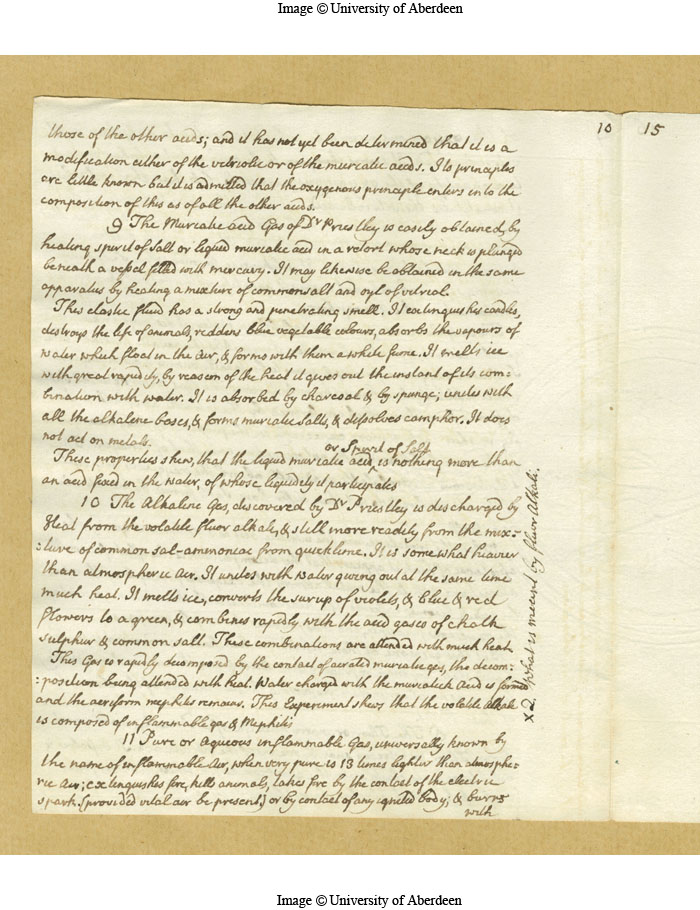 Image © University of Aberdeen
10
15
those of the other acids; and it has not yet been determined that it is a
modification either of the vitriolic or of the muriatic acids. Its principles
are little known but it is admitted that the oxygenous principle enters into the
composition of this as of all the other acids.
9 The Muriatic acid Gas of Dr Priestley is easily obtained, by
heating spirit of Salt or liquid muriatic acid in a retort whose neck is plunged
beneath a vessel filled with mercury. It may likewise be obtained in the same
apparatus by heating a mixture of common salt and oyl of vitriol.
This elastic fluid has a strong and penetrating smell. It extinguishes candles,
destroys the life of animals, reddens blue vegetable colours, absorbs the vapours of
water which float in the air, & forms with them a white fume. It melts ice
with great rapidity, by reason of the heat it gives out the instant of its com-
bination with water. It is absorbed by charcoal & by spunge; unites with
all the alkaline bases, & forms muriatic Salts, & dissolves camphor. It does
not act on metals.
or Spirit of Salt
These properties shew, that the liquid muriatic acid ‸ is nothing more than
an acid fixed in the water, of whose liquidity it participates
10 The Alkaline Gas, discovered by Dr Priestley is discharged by
Heat from the volatile fluor alkali, & still more readily from the mix-:
:ture of common sal-ammoniac from quicklime. It is some what heavier
than atmospheric air. It unites with water giving out at the same time
much heat. It melts ice, converts the surup of violets, & blue & red
flowers to a green, & combines rapidly with the acid gases of chalk
sulphur & common sall. These combinations are attended with much heat.
This Gas is rapidly decomposed by the contact of aerated muriatic gas, this decom-:
:position being attended with heat. Water charged with the muriatick Acid is formed
and the aeriform mephitis remains. This Experiment shews that the volatile Alkali
is composed of inflammable gas & Mephitis
11 Pure or aqueous inflammable Gas, universally known by
the name of inflammable Air, when very pure is 13 times lighter than atmosphe-:
ric Air; extinguishes fire, kills animals, takes fire by the contact of the electric
spark (provided vital air be present) or by contact of any ignited body; & burns
with
x 2. What is meant by fluor Alkali.
Image © University of Aberdeen